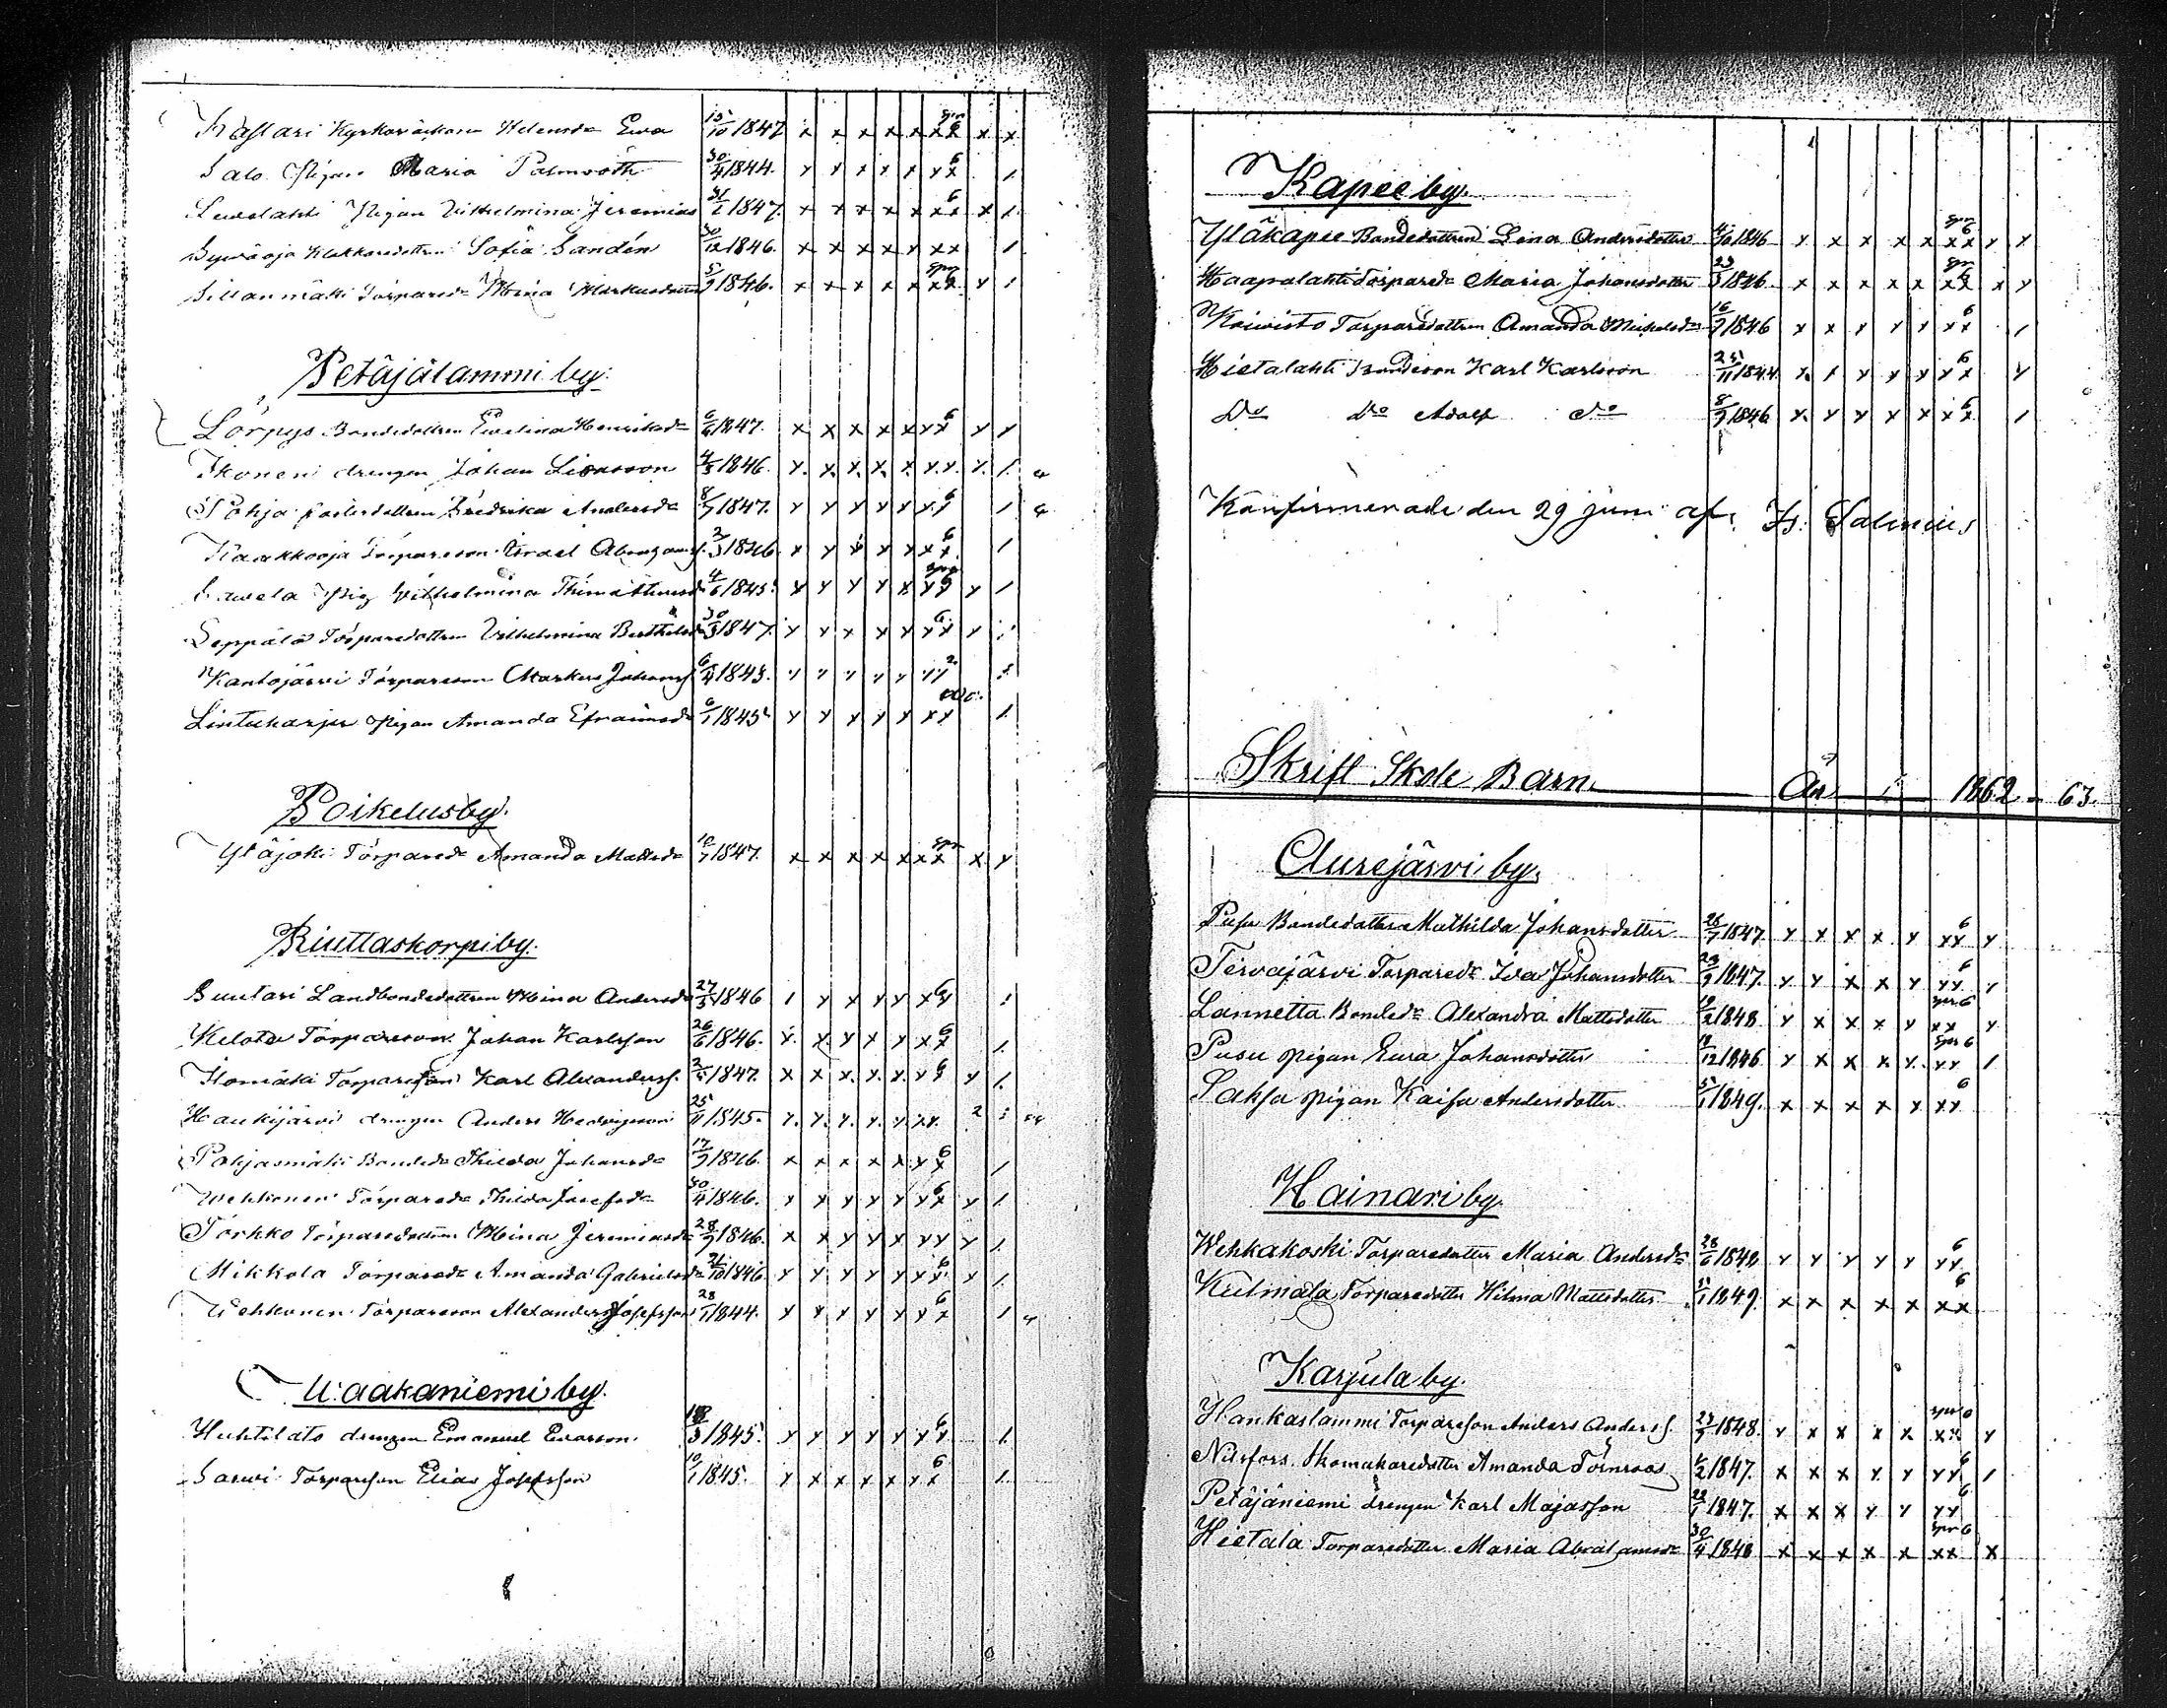 Kassari Kyrkoväktare Helensdr Ewa 15/10 1847 x x x x x xx x x
Salo Pigan Maria Palmroth 30/4 1844. x x x x x xx 6 1.
Pigan Vilhelmina Jeremias 1847. x x x x x xx 6 x 1.
Klockaredottren Sofia Sandén 30/12 1846. x x x x x xx 1
Sillanmäki Torpared. Miina Markusdotter 1846. x x x x x xx x 1
Petäjälammi by.
Lörpys Bondedottren Ewelina Henriksdr 6/6 1847. x x x x x xx 6 x x
Ikonen drengen Johan Lisasson 4/5 1846. x. x. x. x. x. x.x. x. 1.
Pohja Fredrika Andersdr 8/7 1847. x x x x x xx 6 1
Kaakkooja Torpareson Israel Abrahamss. 3/3 1846 x x x x x xx 6 1
Sawela Pig Wilhelmina 4/6 1845. x x x x x x x 1
Seppälä Torparedottren Vilhelmina 30/3 1847. x x x x x xx 6 x
Kantojärvi Torpareson Markus Johanss. 6/4 1843. x x x x x xx 2
Lintuharju Pigan Amanda Efraimsdr 6/1 1845 x x x x x xx 1.
Poikelusby.
Yläjoki Torpareds Amanda Mattsdr 10/7 1847. x x x x x xx x x
Riuttaskorpi by.
Buutari Landbondedottren Miina Andersdr 27/3 1846 1 x x x x xx 6
Kelota Torpareson Johan Karlsson 26/6 1846. x. x. x x x xx 6 1.
Ilomäki Torpareson Karl Alexanderss. 1847. x x x. x. x. x 6 x 1.
Haukijärvi drengen Anders Hedvigsson 25/11 1845. x. x. x. x. x. x.x. 2
Pohjasmäki Bondeds Thilda Johansdr 17/9 1846. x x x x x xx 6 1
Wehkonen Torpareds Thilda Josefsdr 30/4 1846. x x x x x xx 6 x 1.
Törkkö Torparedottren Miina Jeremiasdr 28/9 1846. x x x x x xx x 1.
Mikkola Torpareds Amanda Gabrielsdr 21/10 1846 x x x x x xx 6 x 1.
Wehkonen Torpareson Alexander Josefsson 28/1 1844. x x x x x xx 6 1
Waakaniemi by.
Huhtilato drengen Emanuel Evasson 1845. x x x x x xx 6 1.
Sarwi Torpareson Elias Josefsson 10/1 1845. x x x x x xx 6 1.
Kapee by.
Yläkapee Bondedottren Lina Andersdotter 4/10 1846 x x x x x xx 6 x x
Haapalahti Torpareds Maria Johansdotter 23/3 1846. x x x x x xx 6 x x
Koiwisto Torparedottren Amanda Mickelsdr 16/9 1846 x x x x x xx 6 1
Hietalahti Bondeson Karl Karlsson 25/11 1844. x. x x x x xx 6 x
Do Do Adolf Do 8/9 1846. x. x x x x xx 6 1
Konfirmerade den 29 juni af Is. Salmius
Skrift Skole Barn År 1862 - 63.
Aurejärvi by.
Pusu Bondedotter Mathilda Johansdotter 28/7 1847. x x x x x xx 6 x
Tervajärvi Torpareds Eva Johansdotter 29/9 1847. x x x x x xx 6 x
Lannetta Bondeds Alexandra Mattsdotter 19/2 1848. x x x x x xx 6 x
Pusu pigan Eeva Johansdotter 19/12 1846 x x x x x. xx 6 1
Saksa pigan Kaisa Andersdotter 5/1 1849. x x x x x xx 6
Hainari by.
Wehkakoski Torparedotter Maria Andersdr 28/6 1848 x x x x x xx 6
Kulmala Torparedotter Hilma Mattsdotter 1849. x x x x x xx 6
Karjula by.
Hankaslammi Torpareson Anders Anderss. 23/7 1848. x x x x x xx 6 x
Nisfors Skomakaredotter Amanda Törnroos 6/2 1847. x x x x x xx 6 1
Petäjäniemi drengen Karl Majasson 28/1 1847. x x x x x xx 6
Hietala Torparedotter Maria Abrahamsdr 30/4 1848 x x x x x xx 6 x